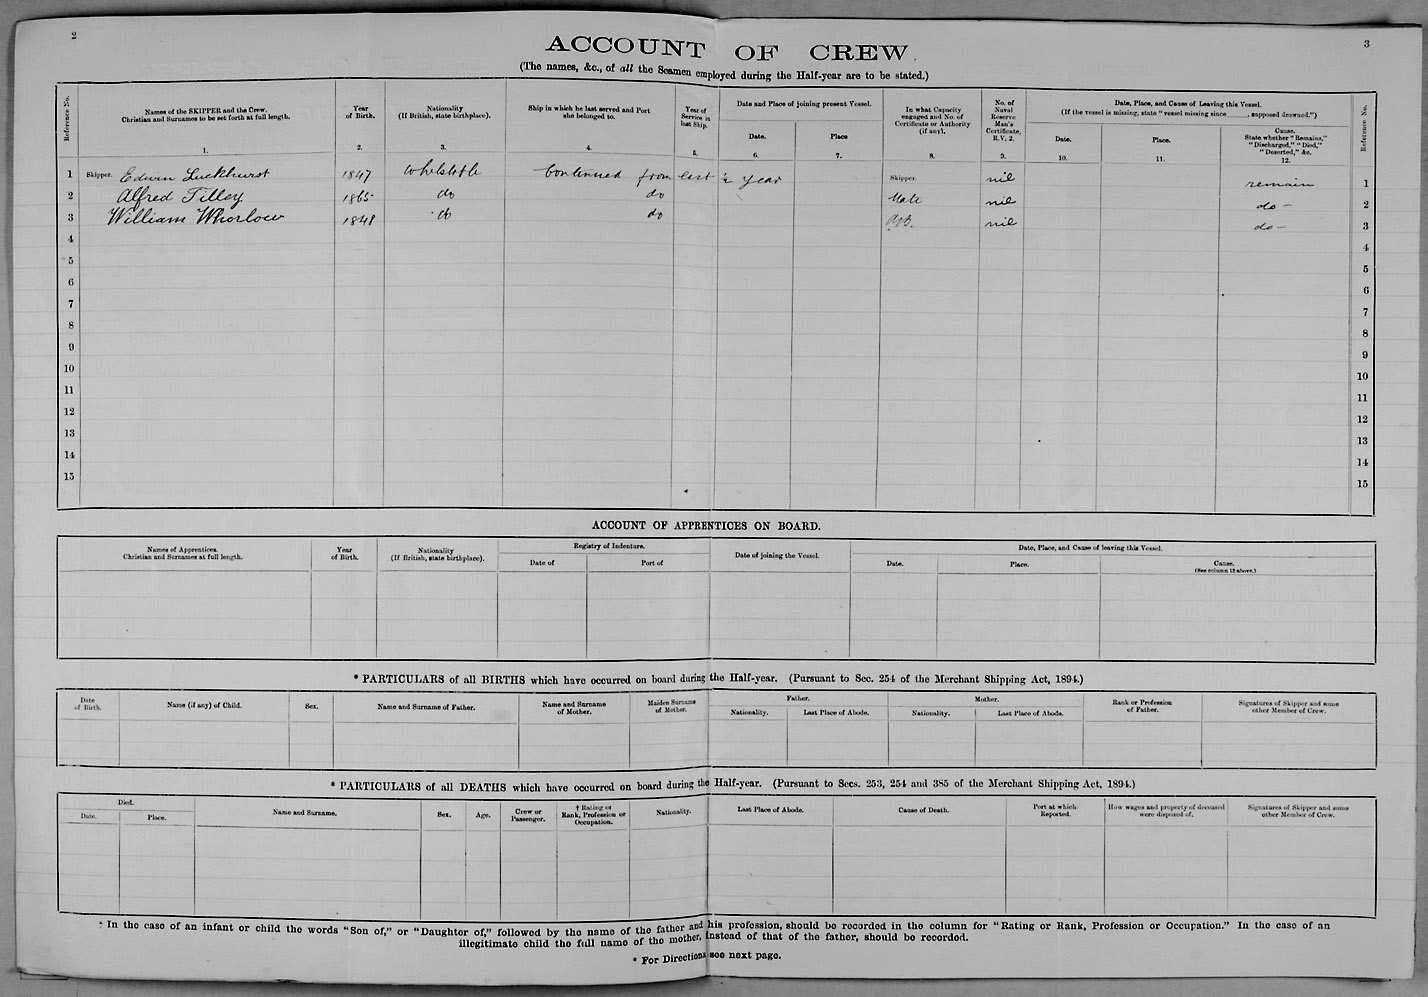 2
3
ACCOUNT OF CREW.
(The names, &c., of all the Seamen employed during the Half-year are to be stated.)
Reference No.
Names of the SKIPPER and the Crew.
Christian and Surnames to be set forth at full length.
1.
Year
of Birth.
2.
Nationality
(If British, state birthplace).
3.
Ship in which he last served and Port
she belonged to.
4.
Year of
Service in
last Ship.
5.
Date and Place of joining present Vessel.
Date.
6.
Place
7.
In what Capacity
engaged and No. of
Certificate or Authority
(if any).
8.
No. of
Naval
Reserve
Man's
Certificate,
R.V. 2.
9.
Date, Place, and Cause of Leaving this Vessel.
(If the vessel is missing, state "vessel missing since____, supposed drowned.")
Date.
10.
Place.
11.
Cause.
State whether "Remains,"
"Discharged," "Died,"
"Deserted," &c.
12.
Reference No.
1 Skipper. Edwin Luckhurst 1847 Whitstable Continued from last ½ year Skipper. nil remain 1
2 Alfred Tilley 1865 do do Mate nil do – 2
3 William Whorlow 1848 do do AB. nil do – 3
4 4
5 5
6 6
7 7
8 8
9 9
10 10
11 11
12 12
13 13
14 14
15 15
ACCOUNT OF APPRENTICES ON BOARD.
Names of Apprentices.
Christian and Surnames at full length.
Year
of Birth.
Nationality
(If British, state birthplace).
Registry of Indenture.
Date of
Port of
Date of joining the Vessel.
Date, Place, and Cause of leaving this Vessel.
Date.
Place.
Cause.
(See column 12 above.)
* PARTICULARS of all BIRTHS which have occurred on board during the Half-year. (Pursuant to Sec. 254 of the Merchant Shipping Act, 1894.)
Date
of Birth.
Name (if any) of Child.
Sex.
Name and Surname of Father.
Name and Surname
of Mother.
Maiden Surname
of Mother.
Father.
Nationality.
Last Place of Abode.
Mother.
Nationality.
Last Place of Abode.
Rank or Profession
of Father.
Signatures of Skipper and some
other Member of Crew.
* PARTICULARS of all DEATHS which have occurred on board during the Half-year. (Pursuant to Secs. 253, 254 and 385 of the Merchant Shipping Act, 1894.)
Died.
Date.
Place.
Name and Surname.
Sex.
Age.
Crew or
Passenger.
† Rating or
Rank, Profession or
Occupation.
Nationality.
Last Place of Abode.
Cause of Death.
Port at which
Reported.
How wages and property of deceased
were disposed of.
Signatures of Skipper and some
other Member of Crew.
† In the case of an infant or child the words "Son of," or "Daughter of," followed by the name of the father and his profession, should be recorded in the column for "Rating or Rank, Profession or Occupation." In the case of an
illegitimate child the full name of the mother, instead of that of the father, should be recorded.
* For Directions see next page.